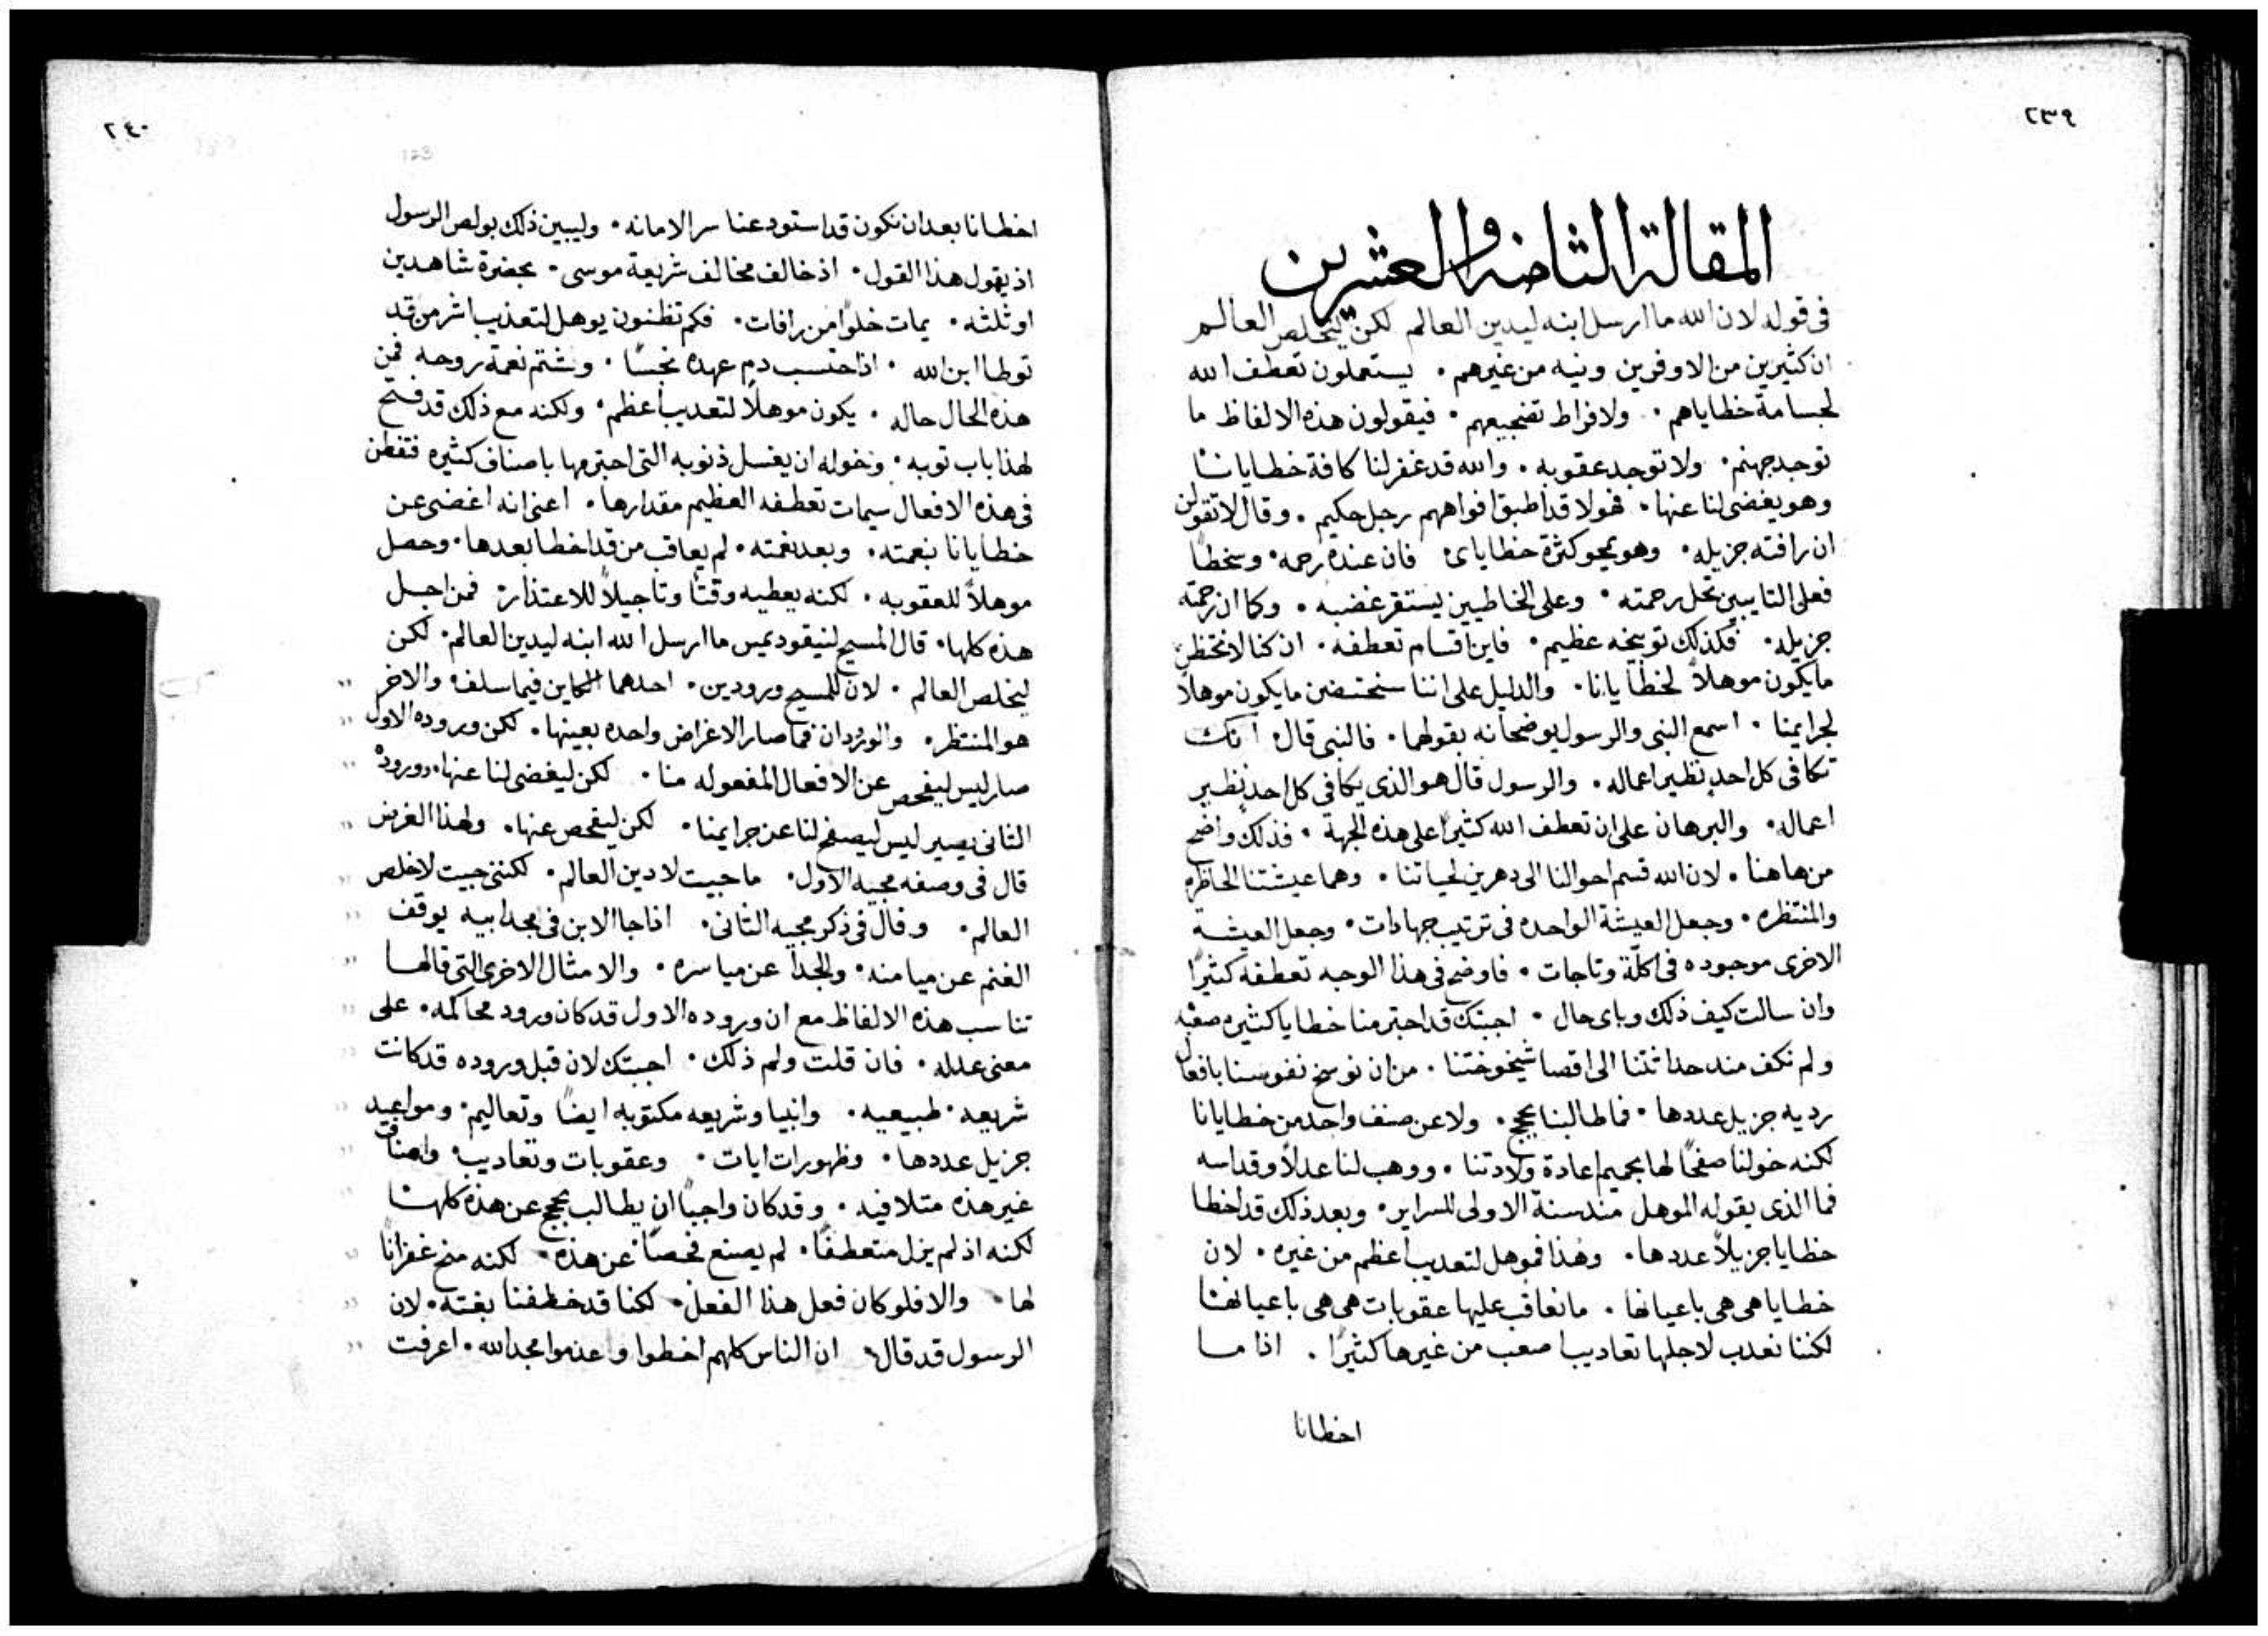 ٢٣٩
المقالة الثامنه والعشرين
في قوله لان الله ما ارسل ابنه ليدين العالم لكن ليخلص العالم
ان كثيرين من الاوفرين ونيه من غيرهم. يستعملون تعطف الله
لجسامة خطاياهم. ولافراط تضجيعهم. فيقولون هذه الالفاظ ما
توجد جهنم. ولا توجد عقوبه. والله قد غفر لنا كافة خطايانا
وهو يغضى لنا عنها. فهولا قد اطبق افواههم رجل حكيم. وقال لا تقولن
ان رافته جزيله. وهو يمحو كثرة خطاياى فان عنده رحمه. وسخطاً
فعلى التايبين تحل رحمته. وعلى الخاطيين يستقر غضبه. وكما ان رحمته
جزيله. فكذلك توبيخه عظيم. فاين اقسام تعطفه. ان كنا لا نحتظرن
ما يكون موهلاً لخطايانا. والدليل على اننا سنحتضن ما يكون موهلاً
لجرايمنا. اسمع النبى والرسول يوضحانه بقولهما. فالنبى قال انك
تكافى كل احد نظير اعماله. والرسول قال هو الذى يكافى كل احد نظير
اعماله. والبرهان على ان تعطف الله كثيراً على هذه الجهة. فذلك واضح
من هاهنا. لان الله قسم احوالنا الى دهرين لحياتنا. وهما عيشتنا الحاظره
والمنتظره. وجعل العيشة الواحده فى ترتيب جهادات. وجعل العيشة
الاخرى موجوده فى اكلّة وتاجات. فاوضح فى هذا الوجه تعطفه كثيراً
وان سالت كيف ذلك وباى حال. اجبتك قد اجترمنا خطايا كثيره صعبه
ولم نكف مند حداثتنا الى اقصا شيخوختنا. من ان نوسخ نفوسنا بافعال
رديه جزيل عددها. فما طالبنا بحجج. ولا عن صنف واحد من خطايانا
لكنه خولنا صفحًا لها بحميم اعادة ولادتنا. ووهب لنا عدلاً وقداسه
فما الذى يقوله الموهل مند سنة الاولى للسراير. وبعد ذلك قد اخطا
خطايا جزيلاً عددها. وهذا فموهل لتعديب اعظم من غيره. لان
خطايا هى هى باعيانها. ما نعاقب عليها عقوبات هى هى باعيانها
لكننا نعدب لاجلها تعاديبا اصعب من غيرها كثيرًا. اذا ما
اخطانا
٢٤٠
اخطانا بعد ان نكون قد استودعنا سر الامانه. وليبين ذلك بولص الرسول
اذ يقول هذا القول. اذ خالف مخالف شريعة موسى. بحضرة شاهدين
او ثلثه. يمات خلوًا من رافات. فكم تظنون يوهل لتعذيب اشر من قد
توطا ابن الله. اذ احتسب دم عهده نجسًا. وشتم نعمة روحه فمن
هذه الحال حاله. يكون موهلاً لتعديب اعظم. ولكنه مع ذلك قد فتح
لهذا باب توبه. وخوله ان يغسل ذنوبه التى اجترمها باصناف كثيره فتفطن
فى هذه الافعال سيمات تعطفه العظيم مقدارها. اعنى انه اغضى عن
خطايانا بنعمته. وبعد نعمته. لم يعاقب من قد اخطا بعدها. وحصل
موهلاً للعقوبه. لكنه يعطيه وقتًا وتاجيلاً للاعتذار. فمن اجل
هذه كلها. قال المسيح لنيقوديمس ما ارسل الله ابنه ليدين العالم. لكن
ليخلص العالم. لان للمسيح ورودين. احدهما الكاين فيما سلف. والاخر
هو المنتظر. والورودان فما صار الاغراض واحده بعينها. لكن وروده الاول
صار ليس ليفحص عن الافعال المفعوله منا. لكن ليغضى لنا عنها. ووروده
الثانى يصير ليس ليصفح لنا عن جرايمنا. لكن ليفحص عنها. ولهذا الغرض
قال فى وصفه مجيه الاول. ما جيت لادين العالم. لكننى جيت لاخلص
العالم. وقال فى ذكر مجيه الثانى. اذا جا الابن فى مجد ابيه يوقف
الغنم عن ميامنه. والجدا عن مياسره. والامثال الاخرى التى قالها
تناسب هذه الالفاظ مع ان وروده الاول قد كان ورود محاكمه. على
معنى عدله. فان قلت ولم ذلك. اجبتك لان قبل وروده قد كانت
شريعه. طبيعيه. وانبيا وشريعه مكتوبه ايضًا وتعاليم. ومواعيد
جزيل عددها. وظهورات ايات. وعقوبات وتعاديب. واصناف
غير هذه متلافيه. وقد كان واجبًا ان يطالب بحجج عن هذه كلها
لكنه اذ لم يزل متعطفًا. لم يصنع فحصًا عن هذه. لكنه منح غفرانًا
لها. والا فلو كان فعل هذا الفعل. لكنا قد خطفنا بغتة. لان
الرسول قد قال. ان الناس كلهم اخطوا واعدموا مجد الله. اعرفت